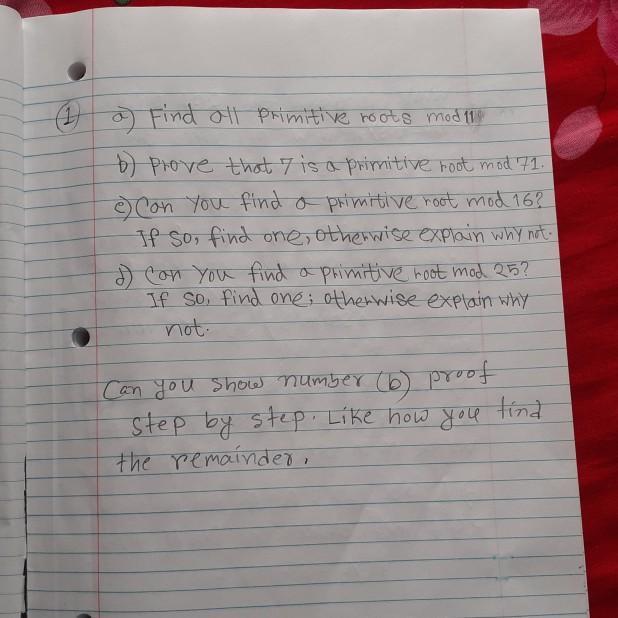 1 a) Find all Primitive roots mod 11
b) Prove that 7 is a primitive root mod 71.
c) Can you find a primitive root mod 16?
If so, find one, otherwise explain why not.
d) Can you find a primitive root mod 25?
If so, find one; otherwise explain why
not.
Can you show number (b) proof
step by step. Like how you find
the remainder.